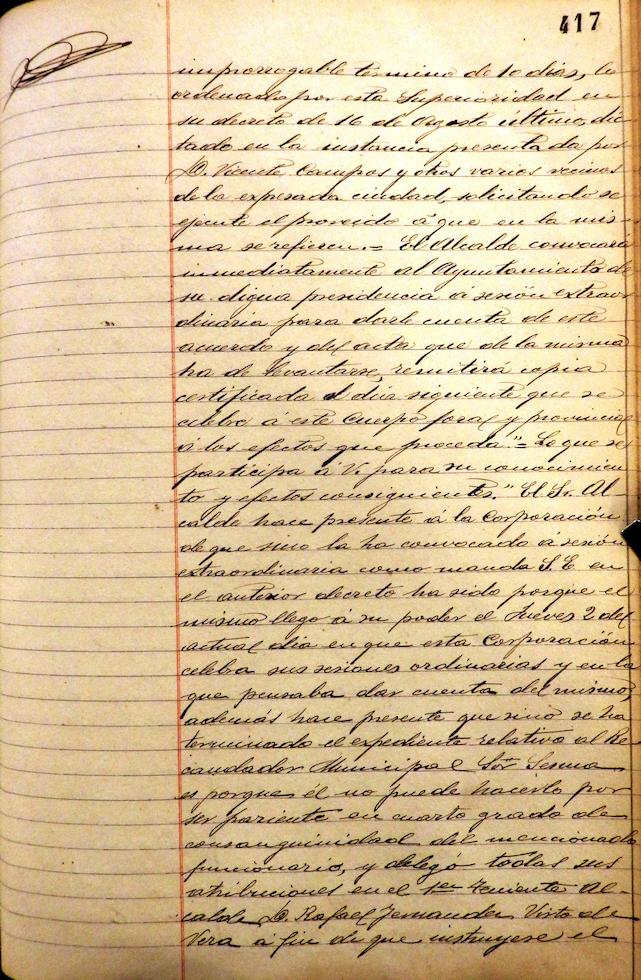 417
improrrogable termino de 10 dias, lo
ordenado por esta Superioridad en
su decreto de 16 de Agosto último, dic
tado en la instancia presentada por
D. Vicente Campos y otros varios vecinos
de la expresada ciudad, solicitando se
ejecute el proveido á que en la mis
ma se refieren.= El Alcalde convocará
inmediatamente al Ayuntamiento de
su digna presidencia á sesión extraor
dinaria para darle cuenta de este
acuerdo y del acta que de la misma
ha de levantarse, remitirá copia
certificada el dia siguiente que se
celebre á este Cuerpo foral y provincial
á los efectos que proceda."= Lo que se
participa á V. para su conocimien
to y efectos consiguientes." El Sr. Al
calde hace presente á la Corporación
de que sino la ha convocado á sesión
extraordinaria como manda S. E. en
el anterior decreto ha sido porque el
mismo llego á su poder el Jueves 2 del
actual dia en que esta Corporación
celebra sus sesiones ordinarias y en la
que pensaba dar cuenta del mismo,
además hace presente que sino se ha
terminado el expediente relativo al Re
caudador Municipal Sor Sesma
es porque él no puede hacerlo por
ser pariente en cuarto grado de
consanguinidad del mencionado
funcionario, y delegó todas sus
atribuciones en el 1er Teniente Al-
calde D. Rafael Fernandez Vista de
Vera á fin de que instruyese el